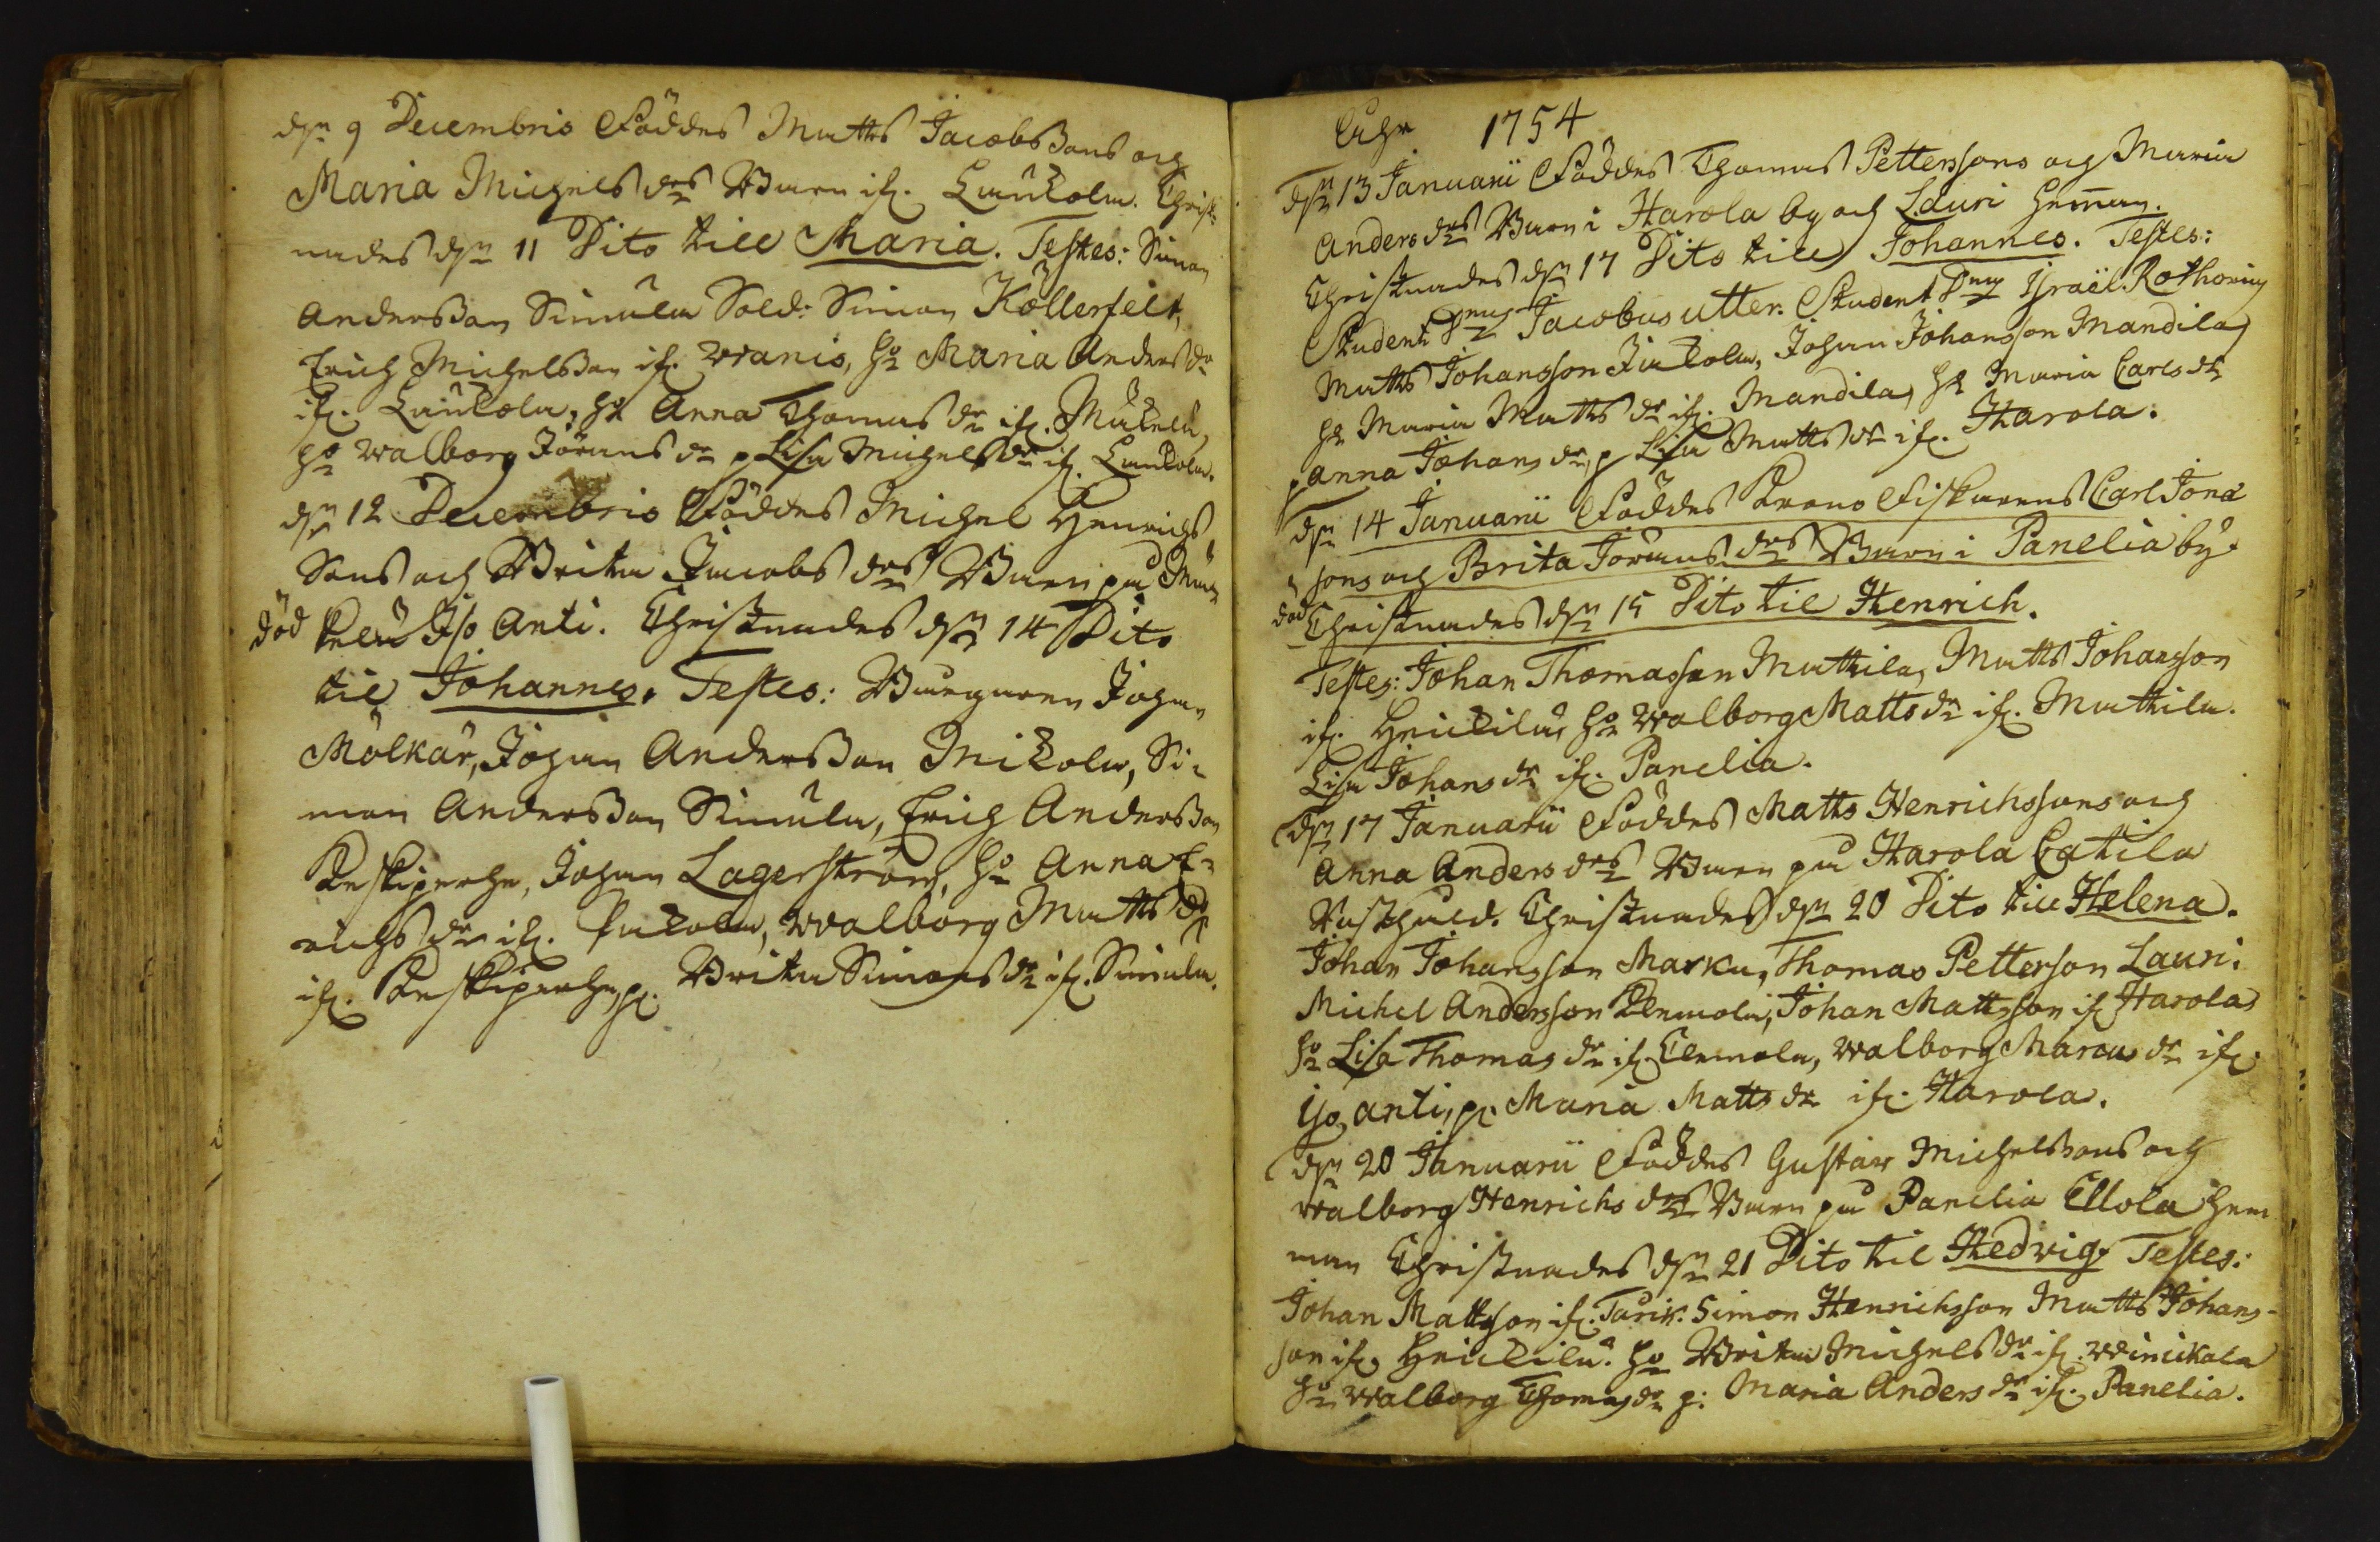 den 9 Decembris Föddes Matts Jacobssons och
Maria Michels drs Barn ifr. Laukola. Christ-
nades den 11 Dito till Maria. Testes: Simon
Andersson Simula Sold: Simon Kællerfelt,
Erich Michelsson ifr. Wanis, ho Maria Anders dr
ifr. Laukola, ho Anna Thomas dr ifr. Mukela,
ho Walborg Jörans dr p Lisa Michels dr ifr. Laukola.
den 12 Decembris Föddes Michel Henrichs
Sons och Brita Jacobs drs Barn på
död Iso Anti. Christnades den 14 Dito
till Johannes. Testes: Johan
Mölkär, Johan Andersson Mikola, Si-
mon Andersson Simula, Erich Andersson
Keskiperhe, Johan Lagerström, ho Anna E-
richs dr ifr. Walborg Matts dr
ifr. Keskiperhe, p. Brita Simons dr ifr. Simula.
Åhr 1754
den 13 Januarii Föddes Thomas Petterssons och Maria
Anders drs Barn i Harola by och Lauri Hemman.
Christnades den 17 Dito till Johannes. Testes:
Student Dnus Jacobus Utter. Student Dnus Israël Rothovius
Matts Johansson Jukola, Johan Johansson Mandila,
ho Maria Matts dr ifr. Mandila, ho Maria Carls dr
p Anna Johans dr, p Lisa Matts dr ifr. Harola.
den 14 Januarii Föddes Krono Fiskarens Carl Jona
sons och Brita Jörans drs Barn i Panelia by
död Christnades den 15 Dito till Henrich.
Testes: Johan Thomasson Mattila, Matts Johansson
ifr. Heickilä, ho Walborg Matts dr ifr. Mattila.
Lisa Johans dr ifr. Panelia.
den 17 Januarii Föddes Matts Henrichssons och
Anna Anders drs Barn på Harola Catila
Christnades den 20 Dito till Helena.
Johan Johansson Marku, Thomas Petterson Lauri.
Michel Andersson Clemola, Johan Mattsson ifr Harola
ho Lisa Thomas dr ifr Clemola, Walborg Marcus dr ifr.
Iso anti, p. Maria Matts dr ifr. Harola.
den 20 Januarii Föddes Gustav Michelssons och
Walborg Henrichs drs Barn på Panelia Ellola hem
man Christnades den 21 Dito till Hedvig. Testes:
Johan Mattsson ifr. Tarik. Simon Henrichsson Matts Johans-
son ifr. Heickilä. ho Brita Michels dr ifr. Weinickala
ho Walborg Thomas dr p: Maria Anders dr ifr. Panelia.